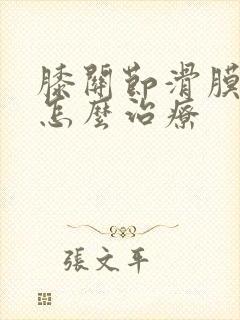 膝關節滑膜
怎麼治療
張文平